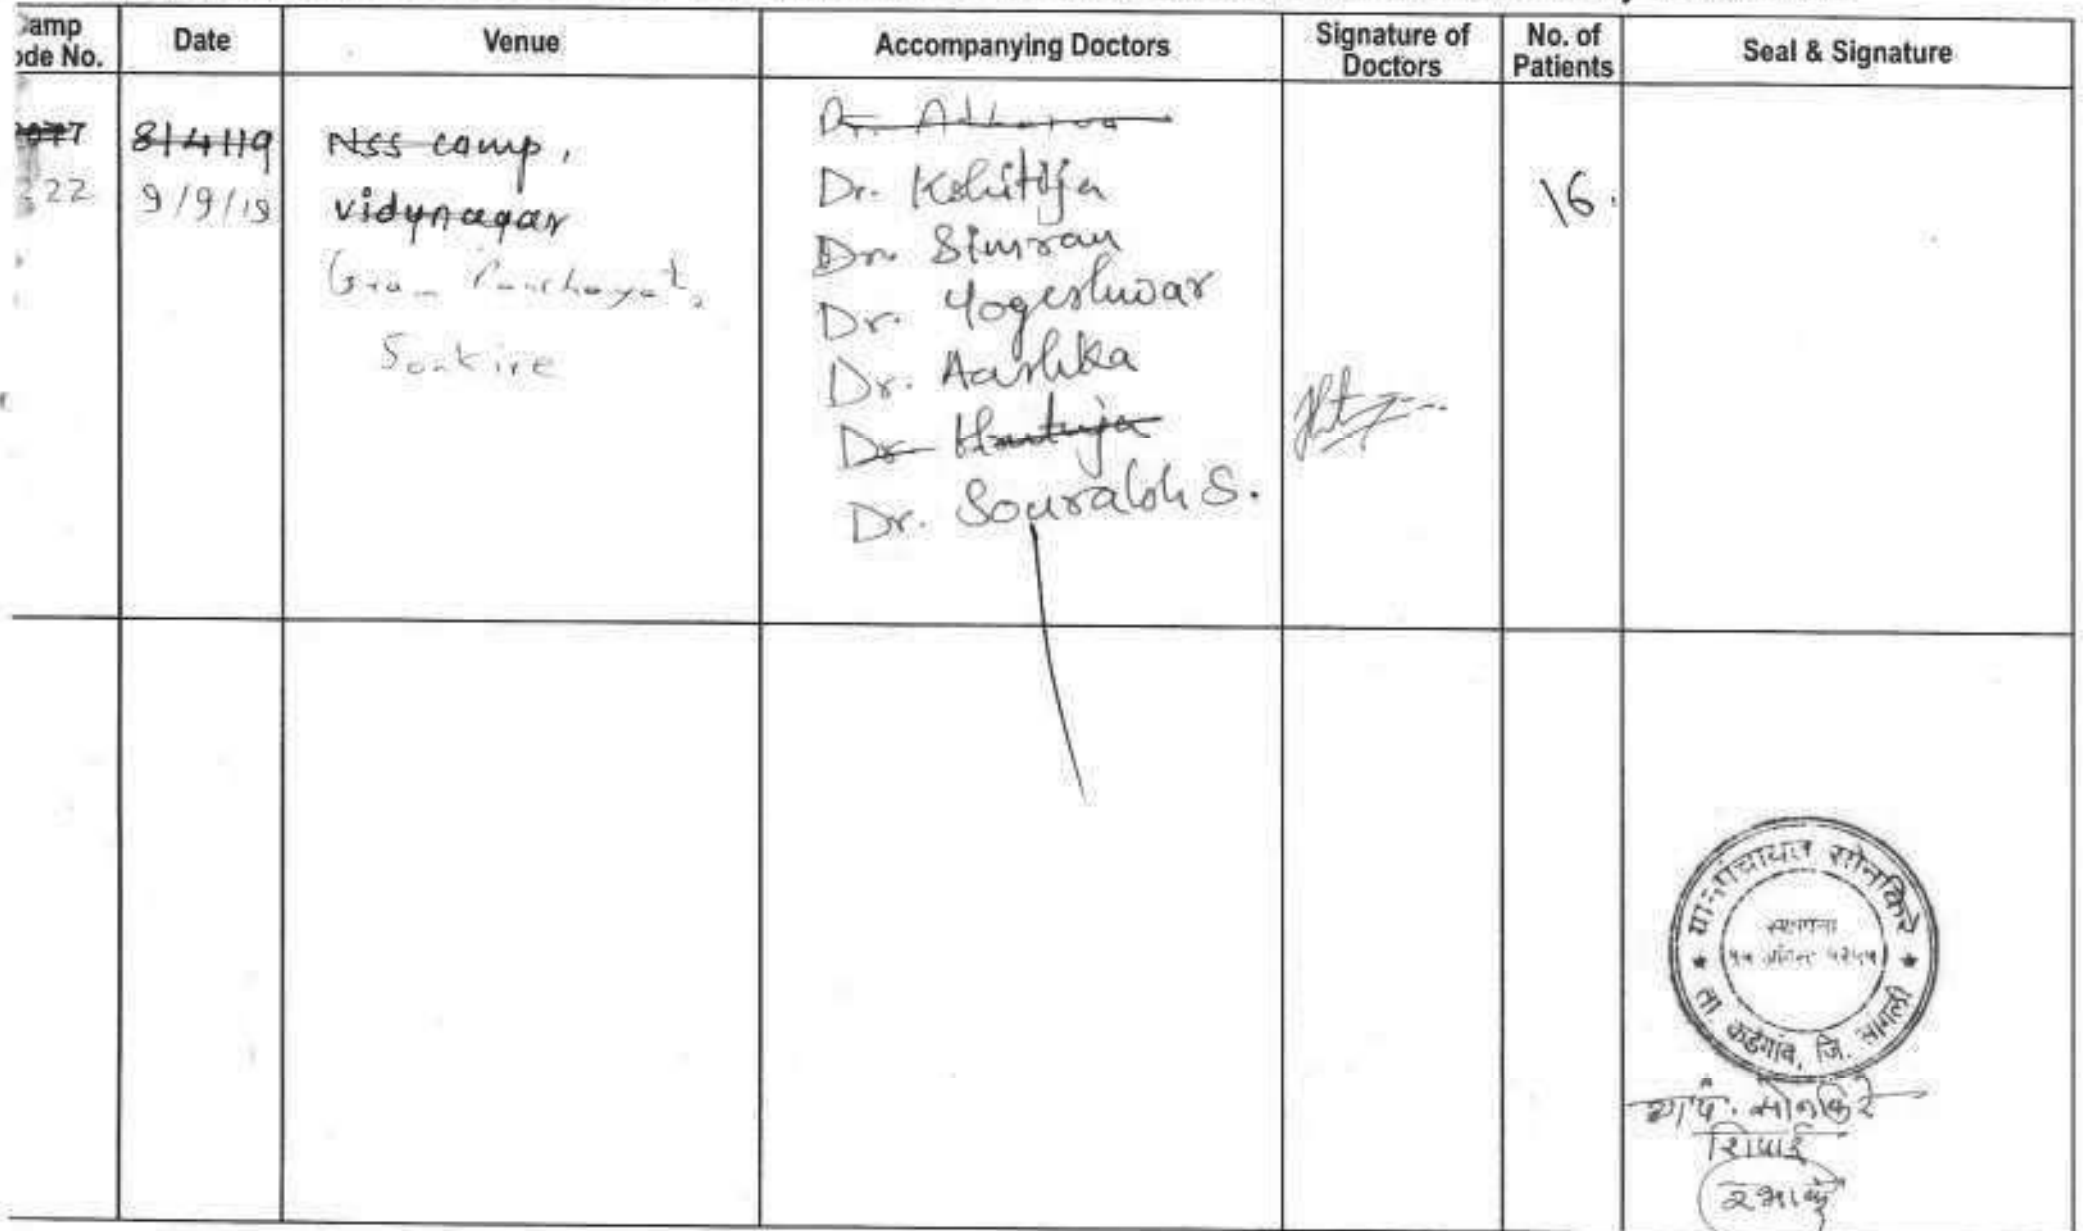 Camp
ode No.
Date
Venue
Accompanying Doctors
Signature of
Doctors
No. of
Patients
Seal & Signature
8/4/19
Nss camp,
vidynagar
22
9/9/19
Gram Panchayat,
Sonkire
Dr. Kshitija
Dr. Simran
Dr. Yogeshwar
Dr. Aashika
Dr.
Dr. Sourabh S.
16.
ग्रामपंचायत सोनकिरे
स्थापना
ता. कडेगांव, जि. सांगली
ग्रा.पं. सोनकिरे
शिपाई